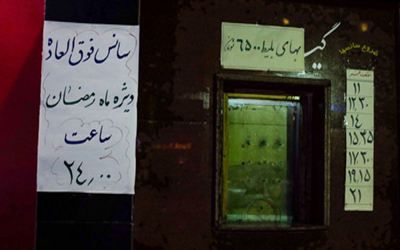 سانس فوق العاده
ویژه ماه رمضان
ساعت
۲۴/۰۰
بهای بلیط ۶۵۰۰ تومان
شروع سانسها
۱۱
۱۲:۳۰
۱۴
۱۵:۴۵
۱۷:۳۰
۱۹:۱۵
۲۱